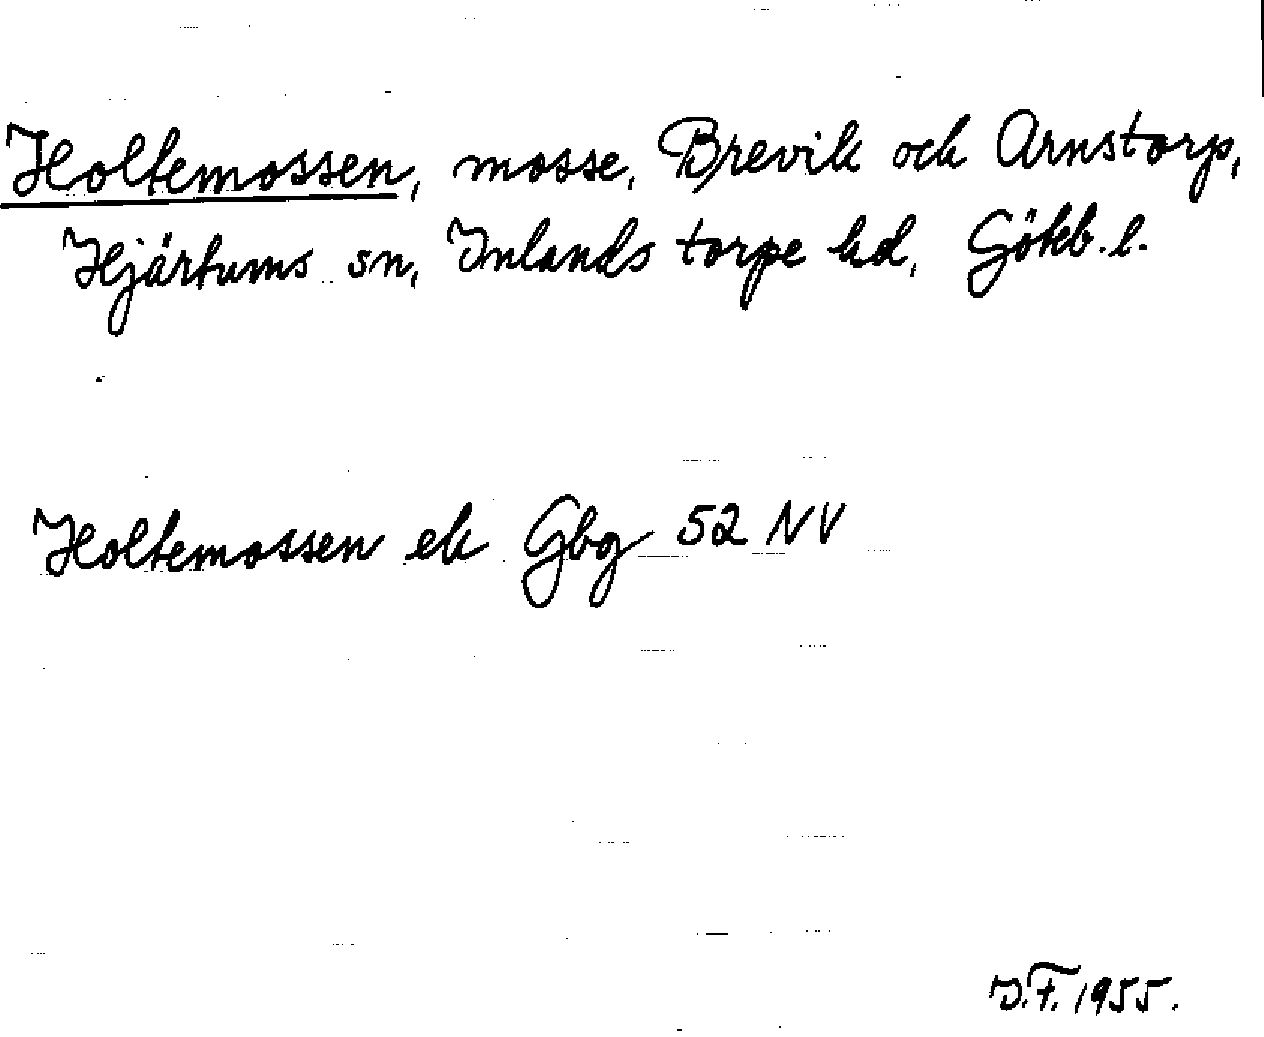 Holtemossen, mosse, Brevik och Arnstorp,
Hjärtums sn, Inlands torpe hd, Götkb. l.
Holtemossen ek Gbg 52 NV
I.F. 1955.